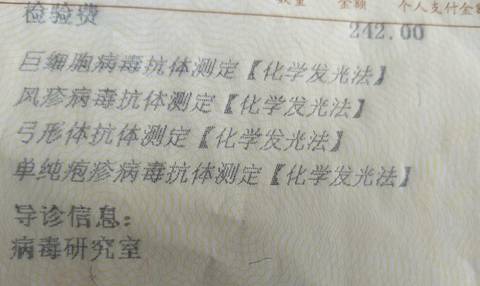 数量 金额 个人支付金额
检验费 242.00
巨细胞病毒抗体测定【化学发光法】
风疹病毒抗体测定【化学发光法】
弓形体抗体测定【化学发光法】
单纯疱疹病毒抗体测定【化学发光法】
导诊信息：
病毒研究室